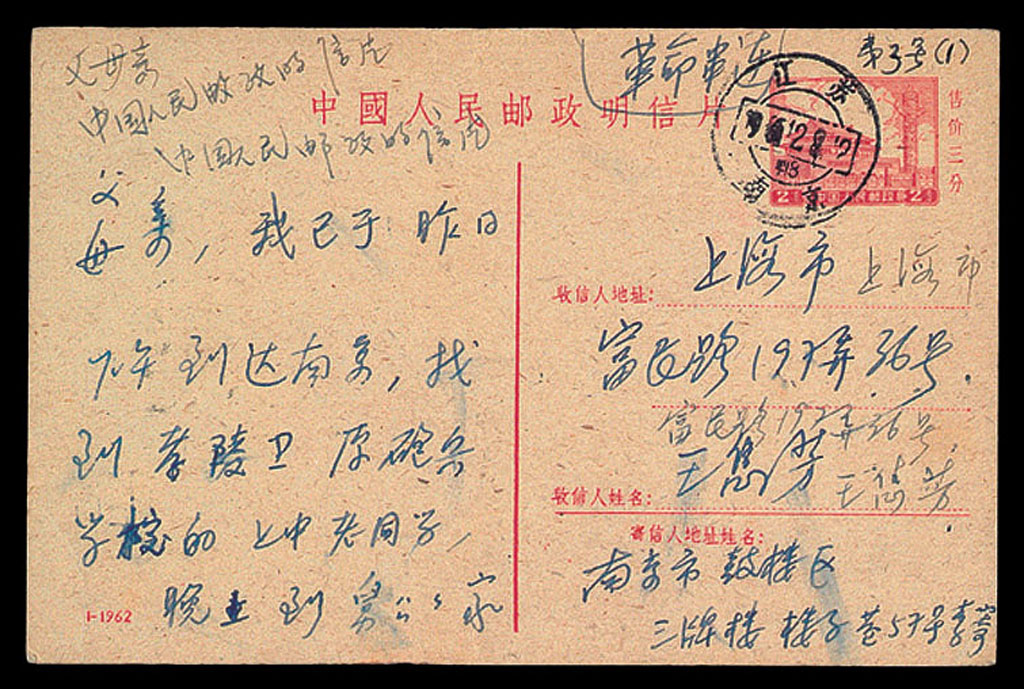 父母亲
中国人民邮政的信片
中国人民邮政的信片
中國人民邮政明信片
革命串连
第3号(1)
江苏
12
南京
售价三分
2 中国人民邮政 2
父
母亲，我已于昨日
下午到达南京，找
到孝陵卫原砲兵
学校的上中老同学，
晚上到舅公公家
1-1962
收信人地址：
上海市 上海市
富民路197弄36号.
富民路197弄36号.
收信人姓名：
王雋芳 王雋芳
寄信人地址姓名：
南京市鼓楼区
三牌楼 楼子巷57号李